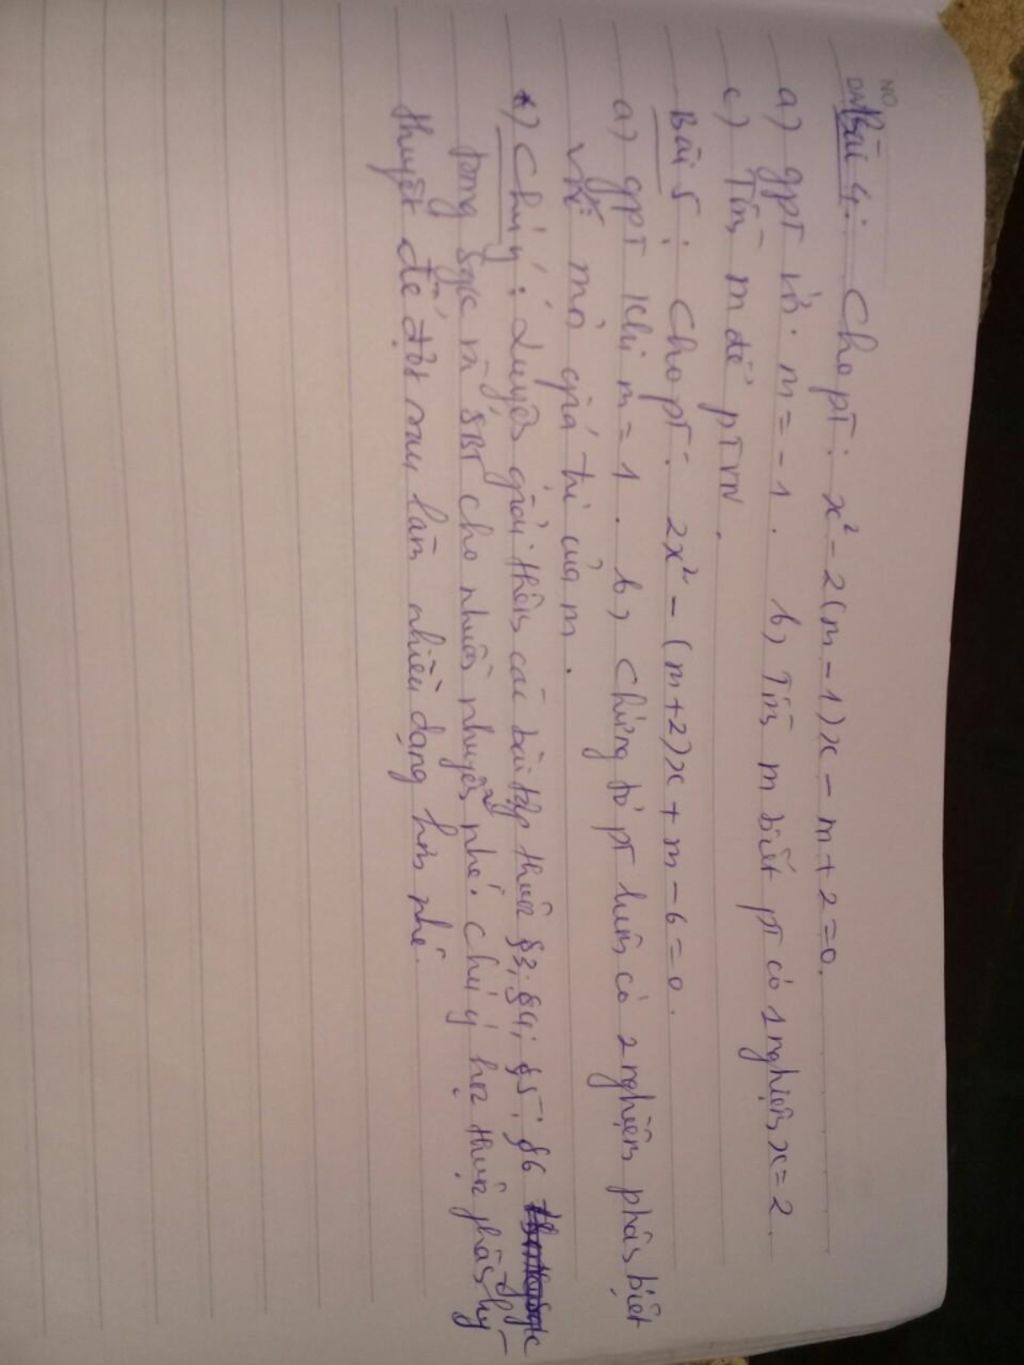 NO
DATE
Bài 4: Cho pT: x² - 2(m-1)x - m + 2 = 0.
a) gpT với m = -1. b) Tìm m biết pT có 1 nghiệm x = 2.
c) Tìm m để pTVN.
Bài 5: Cho pT: 2x² - (m+2)x + m - 6 = 0.
a) gpT khi m = 1. b) Chứng tỏ pT luôn có 2 nghiệm phân biệt
với mọi giá trị của m.
*) Chú ý: Luyện giải thêm các bài tập thuộc §3; §4; §5; §6
trong sgk và SBT cho nhuần nhuyễn nhé. Chú ý học thuộc phần lý
thuyết để đợt sau làm nhiều dạng hơn nhé.